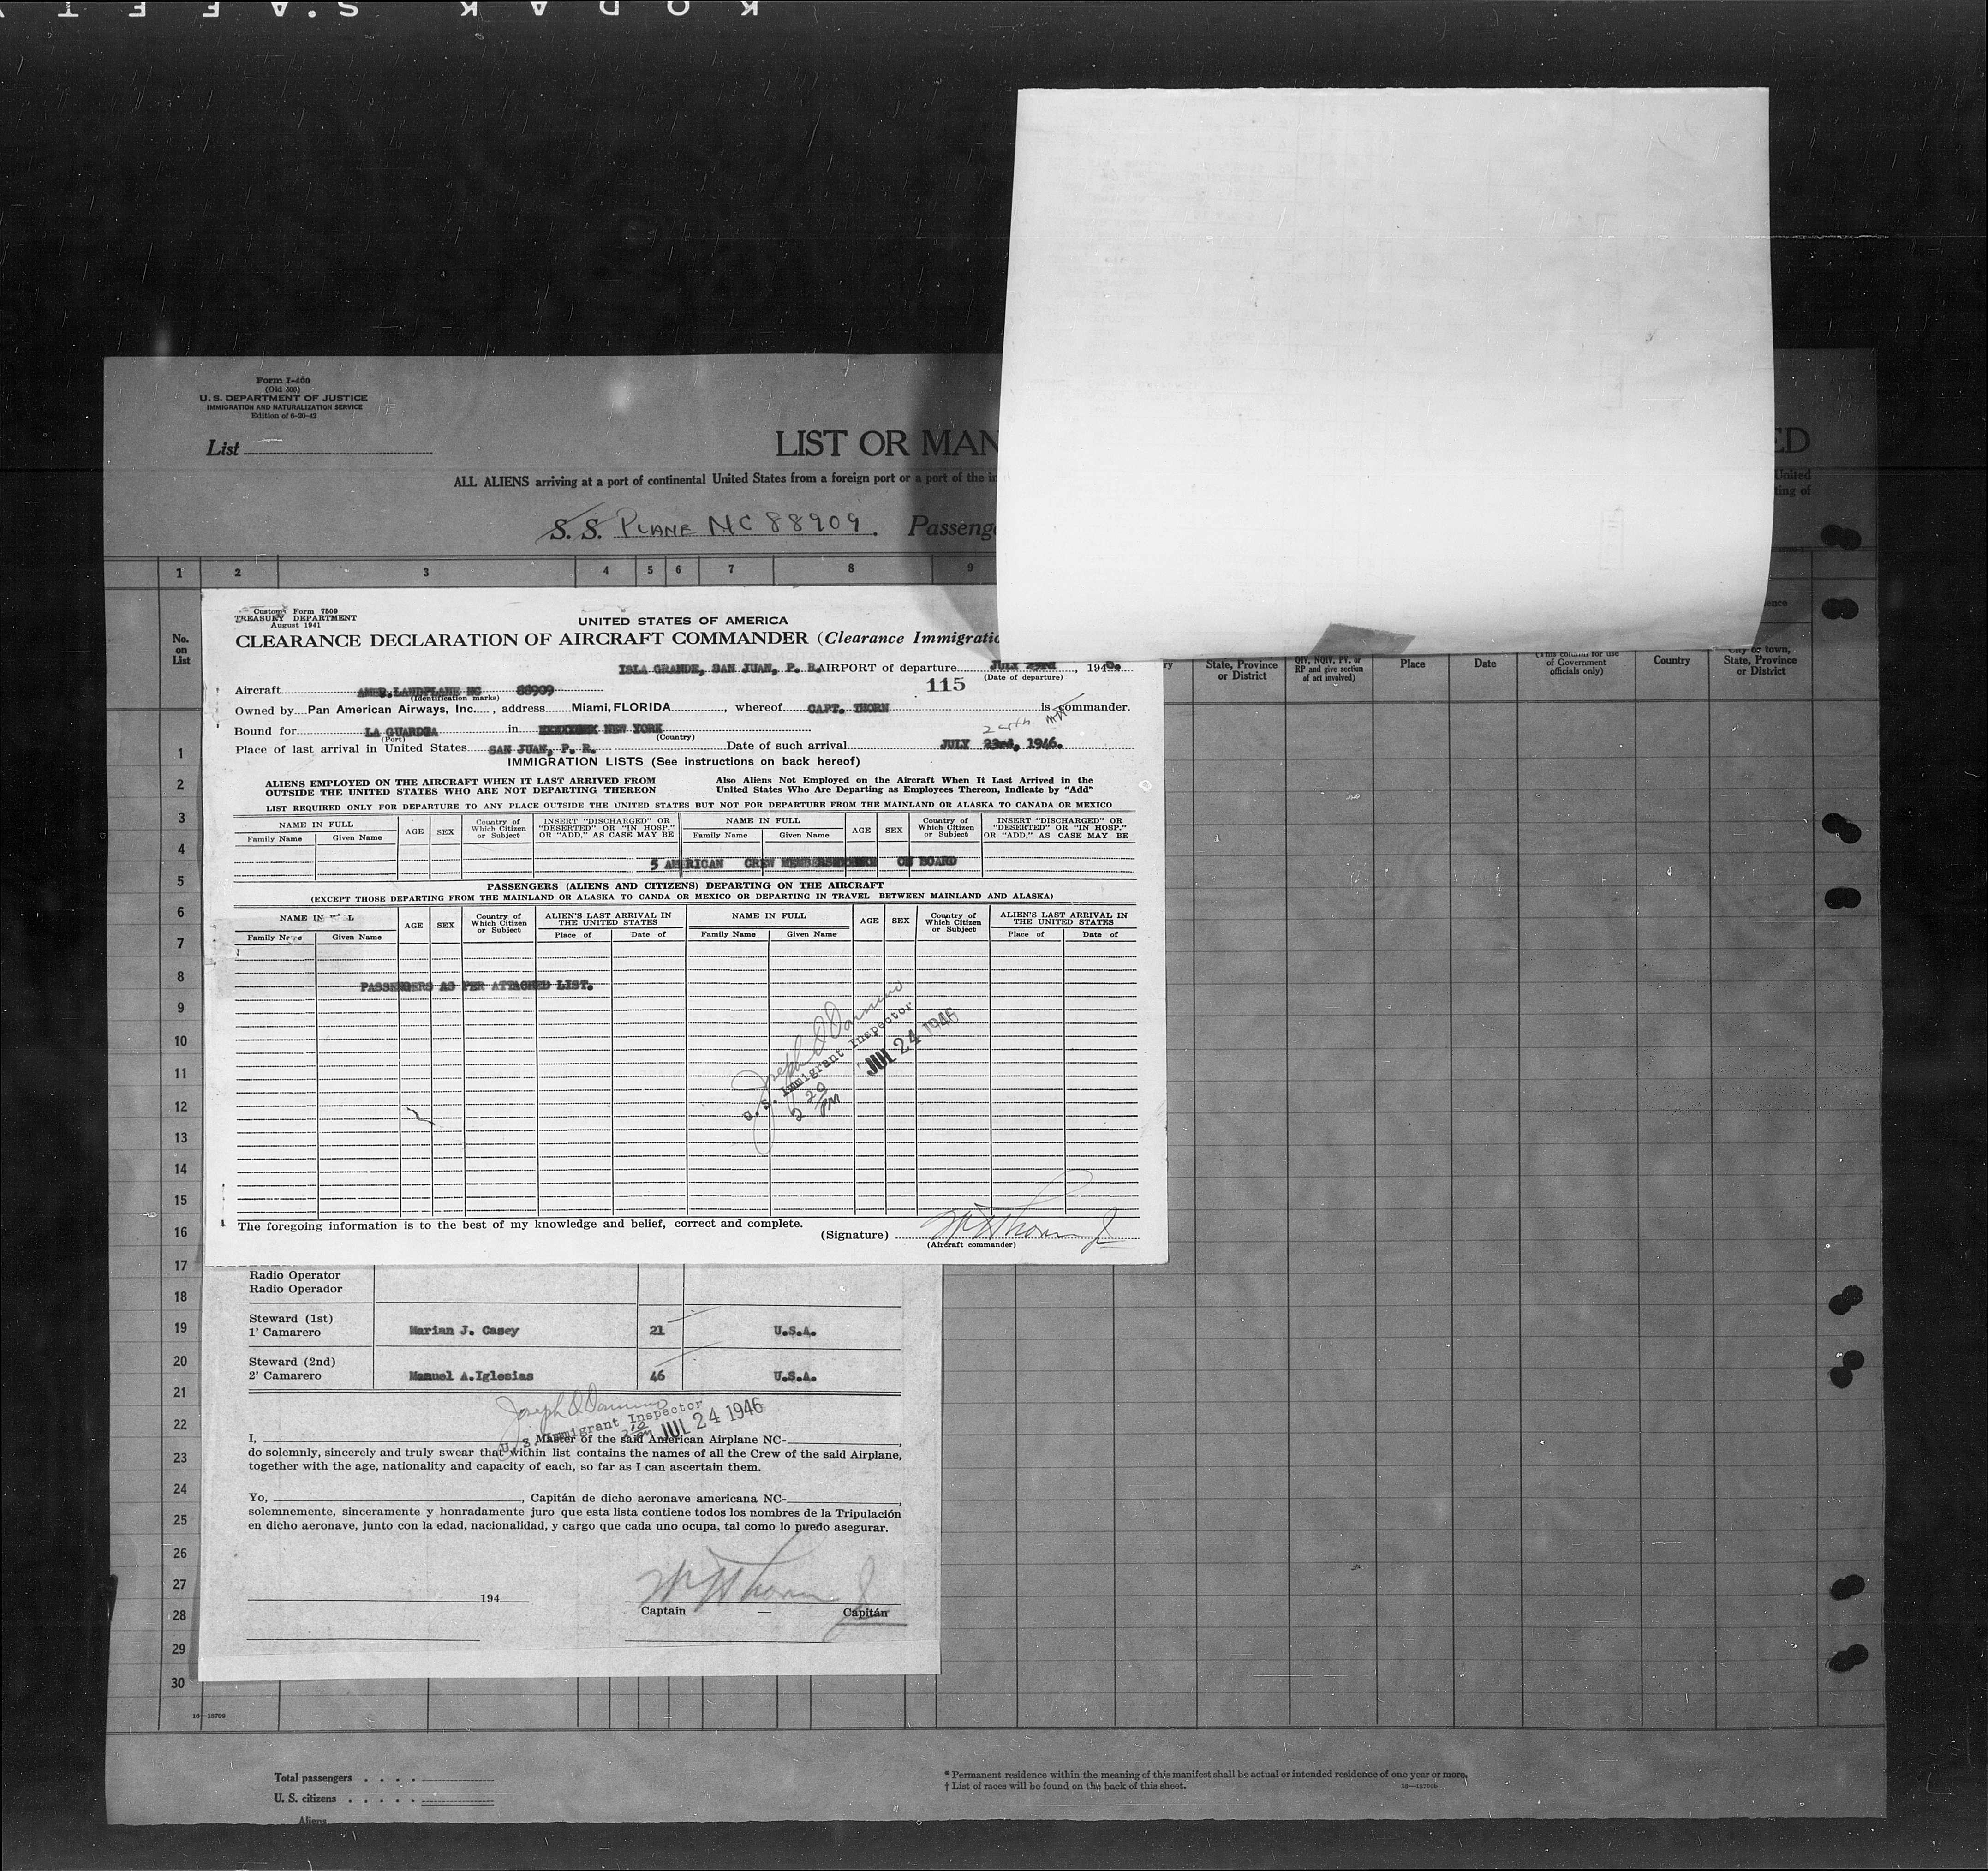 KODAK S.AFET
Form I-460
(Old 500)
U. S. DEPARTMENT OF JUSTICE
IMMIGRATION AND NATURALIZATION SERVICE
Edition of 6-20-42
List
LIST OR MAN
ED
ALL ALIENS arriving at a port of continental United States from a foreign port or a port of the in
United
ting of
S. S. PLANE NC 88909. Passeng
1 2 3 4 5 6 7 8 9
No. on List
State, Province or District
RP and give section of act involved)
Place
Date
(This column for use of Government officials only)
Country
City or town, State, Province or District
Customs Form 7509
TREASURY DEPARTMENT
August 1941
UNITED STATES OF AMERICA
CLEARANCE DECLARATION OF AIRCRAFT COMMANDER (Clearance Immigratio
ISLA GRANDE, SAN JUAN, P. R. AIRPORT of departure JULY 23rd, 194
(Date of departure)
115
Aircraft AMER. LANDPLANE NC 88909
(Identification marks)
Owned by Pan American Airways, Inc., address Miami, FLORIDA, whereof CAPT. THORN is commander.
24th
Bound for LA GUARDIA in NEW YORK
(Port) (Country)
Place of last arrival in United States SAN JUAN, P. R. Date of such arrival JULY 23rd, 1946.
IMMIGRATION LISTS (See instructions on back hereof)
ALIENS EMPLOYED ON THE AIRCRAFT WHEN IT LAST ARRIVED FROM
OUTSIDE THE UNITED STATES WHO ARE NOT DEPARTING THEREON
Also Aliens Not Employed on the Aircraft When It Last Arrived in the
United States Who Are Departing as Employees Thereon, Indicate by "Add"
LIST REQUIRED ONLY FOR DEPARTURE TO ANY PLACE OUTSIDE THE UNITED STATES BUT NOT FOR DEPARTURE FROM THE MAINLAND OR ALASKA TO CANADA OR MEXICO
NAME IN FULL
Family Name Given Name
AGE SEX
Country of Which Citizen or Subject
INSERT "DISCHARGED" OR "DESERTED" OR "IN HOSP." OR "ADD," AS CASE MAY BE
NAME IN FULL
Family Name Given Name
AGE SEX
Country of Which Citizen or Subject
INSERT "DISCHARGED" OR "DESERTED" OR "IN HOSP." OR "ADD," AS CASE MAY BE
5 AMERICAN CREW MEMBERS ON BOARD
PASSENGERS (ALIENS AND CITIZENS) DEPARTING ON THE AIRCRAFT
(EXCEPT THOSE DEPARTING FROM THE MAINLAND OR ALASKA TO CANDA OR MEXICO OR DEPARTING IN TRAVEL BETWEEN MAINLAND AND ALASKA)
NAME IN FULL
Family Name Given Name
AGE SEX
Country of Which Citizen or Subject
ALIEN'S LAST ARRIVAL IN THE UNITED STATES
Place of Date of
NAME IN FULL
Family Name Given Name
AGE SEX
Country of Which Citizen or Subject
ALIEN'S LAST ARRIVAL IN THE UNITED STATES
Place of Date of
PASSENGERS AS PER ATTACHED LIST.
U. S. Immigrant Inspector
JUL 24 1946
2 20 PM
The foregoing information is to the best of my knowledge and belief, correct and complete.
(Signature)
(Aircraft commander)
Radio Operator
Radio Operador
Steward (1st)
1' Camarero Marian J. Casey 21 U.S.A.
Steward (2nd)
2' Camarero Manuel A.Iglesias 46 U.S.A.
U. S. Immigrant Inspector
JUL 24 1946
I, Master of the said American Airplane NC-,
do solemnly, sincerely and truly swear that within list contains the names of all the Crew of the said Airplane,
together with the age, nationality and capacity of each, so far as I can ascertain them.
Yo, , Capitán de dicho aeronave americana NC-,
solemnemente, sinceramente y honradamente juro que esta lista contiene todos los nombres de la Tripulación
en dicho aeronave, junto con la edad, nacionalidad, y cargo que cada uno ocupa, tal como lo puedo asegurar.
194
Captain — Capitán
1
2
3
4
5
6
7
8
9
10
11
12
13
14
15
16
17
18
19
20
21
22
23
24
25
26
27
28
29
30
16—18709
Total passengers . . . .
U. S. citizens . . . . .
Aliens
* Permanent residence within the meaning of this manifest shall be actual or intended residence of one year or more.
† List of races will be found on the back of this sheet.